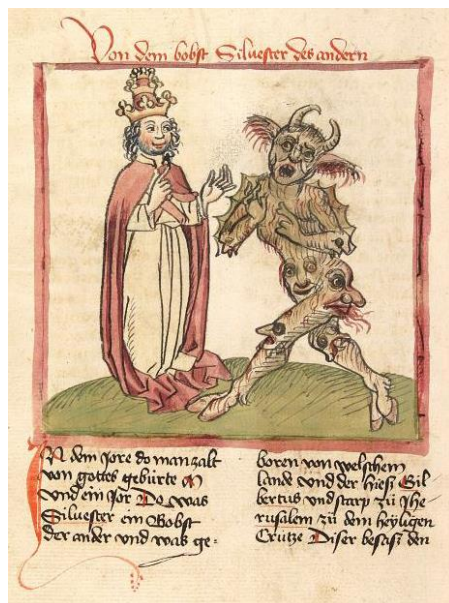 Von dem bobst Siluester des andern
IN dem jore do man zalt
von gottes gebürte M
vnd ein jor Do was
Siluester ein Bobst
der ander vnd was ge=
boren von welschem
lande vnd der hiesz Gil
bertus vnd starp zů Jhe
rusalem zů dem heyligen
Crütze Diser besasz den